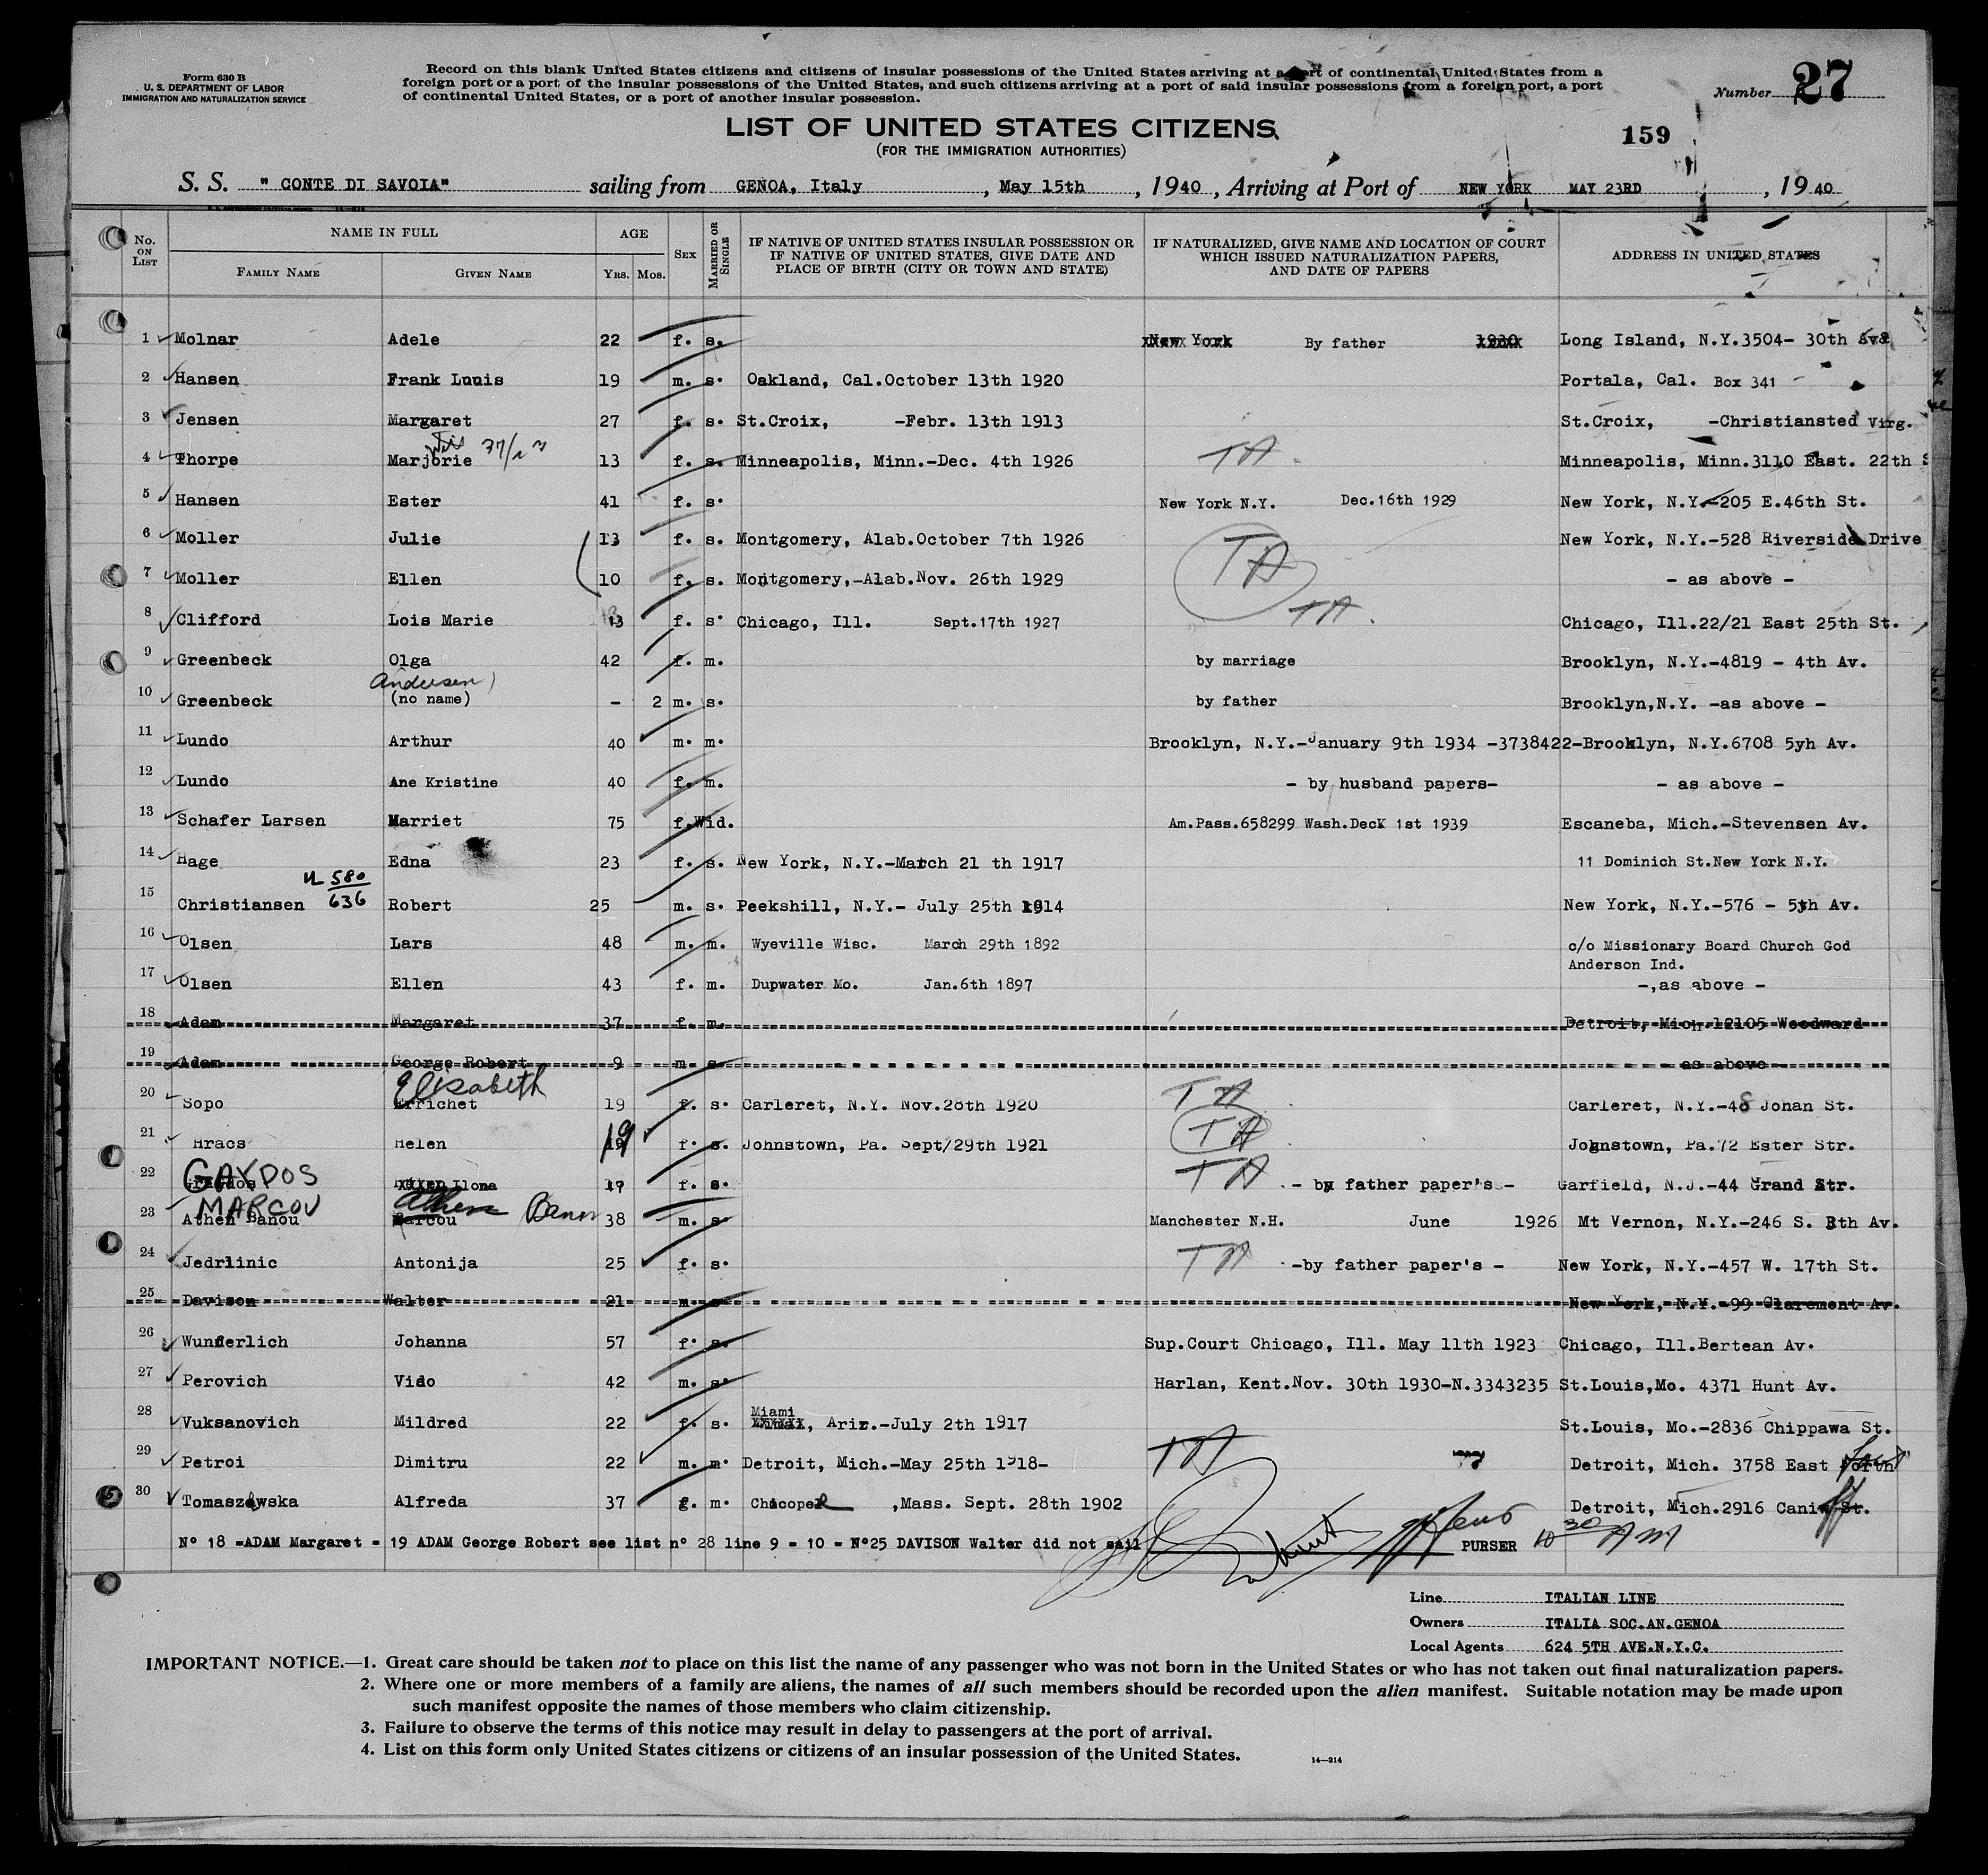 Form 630 B
U. S. DEPARTMENT OF LABOR
IMMIGRATION AND NATURALIZATION SERVICE
Record on this blank United States citizens and citizens of insular possessions of the United States arriving at a port of continental United States from a
foreign port or a port of the insular possessions of the United States, and such citizens arriving at a port of said insular possessions from a foreign port, a port
of continental United States, or a port of another insular possession.
Number 27
LIST OF UNITED STATES CITIZENS
159
(FOR THE IMMIGRATION AUTHORITIES)
S. S. " CONTE DI SAVOIA" sailing from GENOA, Italy , May 15th , 1940 , Arriving at Port of NEW YORK MAY 23RD , 1940
No. ON LIST NAME IN FULL FAMILY NAME GIVEN NAME AGE YRS. MOS. SEX MARRIED OR SINGLE IF NATIVE OF UNITED STATES INSULAR POSSESSION OR IF NATIVE OF UNITED STATES, GIVE DATE AND PLACE OF BIRTH (CITY OR TOWN AND STATE) IF NATURALIZED, GIVE NAME AND LOCATION OF COURT WHICH ISSUED NATURALIZATION PAPERS, AND DATE OF PAPERS ADDRESS IN UNITED STATES
1 Molnar Adele 22 f. s. New York By father 1930 Long Island, N.Y.3504- 30th Av.
2 Hansen Frank Luuis 19 m. s. Oakland, Cal.October 13th 1920 Portala, Cal. Box 341
3 Jensen Margaret 27 f. s. St.Croix, -Febr. 13th 1913 St.Croix, -Christiansted Virg.
4 Thorpe Marjorie 13 f. s. Minneapolis, Minn.-Dec. 4th 1926 TA Minneapolis, Minn.3110 East. 22th S
5 Hansen Ester 41 f. s. New York N.Y. Dec.16th 1929 New York, N.Y.-205 E.46th St.
6 Moller Julie 13 f. s. Montgomery, Alab.October 7th 1926 TA New York, N.Y.-528 Riverside Drive
7 Moller Ellen 10 f. s. Montgomery,-Alab.Nov. 26th 1929 - as above -
8 Clifford Lois Marie 13 f. s. Chicago, Ill. Sept.17th 1927 TA Chicago, Ill.22/21 East 25th St.
9 Greenbeck Olga 42 f. m. by marriage Brooklyn, N.Y.-4819 - 4th Av.
Andersen
10 Greenbeck (no name) - 2 m. s. by father Brooklyn,N.Y. -as above -
11 Lundo Arthur 40 m. m. Brooklyn, N.Y.-January 9th 1934 -3738422-Brooklyn, N.Y.6708 5yh Av.
12 Lundo Ane Kristine 40 f. m. - by husband papers- - as above -
13 Schafer Larsen Marriet 75 f. Wid. Am.Pass.658299 Wash.Deck 1st 1939 Escaneba, Mich.-Stevensen Av.
14 Hage Edna 23 f. s. New York, N.Y.-March 21 th 1917 11 Dominich St.New York N.Y.
580
636
15 Christiansen Robert 25 m. s. Peekshill, N.Y.- July 25th 1914 New York, N.Y.-576 - 5th Av.
16 Olsen Lars 48 m. m. Wyeville Wisc. March 29th 1892 c/o Missionary Board Church God
Anderson Ind.
17 Olsen Ellen 43 f. m. Dupwater Mo. Jan.6th 1897 -,as above -
18 Adam Margaret 37 f. m. Detroit, Mich.12105 Woodward
19 Adam George Robert 9 m. s. as above
Elisabeth
20 Sopo Errichet 19 f. s. Carleret, N.Y. Nov.28th 1920 TA Carleret, N.Y.-48 Johan St.
21 Hracs Helen 19 f. s. Johnstown, Pa. Sept/29th 1921 TA Jognstown, Pa.72 Ester Str.
GAYDOS
22 Ilona f. s. TA - by father paper's - Garfield, N.J.-44 Grand Str.
MARCOU Athena Banou
23 Athen Banou Marcou 38 m. s. Manchester N.H. June 1926 Mt Vernon, N.Y.-246 S. 8th Av.
24 Jedrlinic Antonija 25 f. s. TA -by father paper's - New York, N.Y.-457 W. 17th St.
25 Davison Walter 21 m. s. New York, N.Y.-99 Claremont Av.
26 Wunderlich Johanna 57 f. s. Sup.Court Chicago, Ill. May 11th 1923 Chicago, Ill.Bertean Av.
27 Perovich Vido 42 m. s. Harlan, Kent.Nov. 30th 1930-N.3343235 St.Louis,Mo. 4371 Hunt Av.
Miami
28 Vuksanovich Mildred 22 f. s. , Ariz.-July 2th 1917 St.Louis, Mo.-2836 Chippawa St.
29 Petroi Dimitru 22 m. m. Detroit, Mich.-May 25th 1918- TA Detroit, Mich. 3758 East
30 Tomaszewska Alfreda 37 f. m. Chicopee ,Mass. Sept. 28th 1902 Detroit, Mich.2916 Caniff St.
N° 18 -ADAM Margaret - 19 ADAM George Robert see list n° 28 line 9 - 10 - N°25 DAVISON Walter did not sail PURSER 10 30 AM
Line ITALIAN LINE
Owners ITALIA SOC.AN.GENOA
Local Agents 624 5TH AVE.N.Y.C.
IMPORTANT NOTICE.—1. Great care should be taken not to place on this list the name of any passenger who was not born in the United States or who has not taken out final naturalization papers.
2. Where one or more members of a family are aliens, the names of all such members should be recorded upon the alien manifest. Suitable notation may be made upon
such manifest opposite the names of those members who claim citizenship.
3. Failure to observe the terms of this notice may result in delay to passengers at the port of arrival.
4. List on this form only United States citizens or citizens of an insular possession of the United States.
14—214